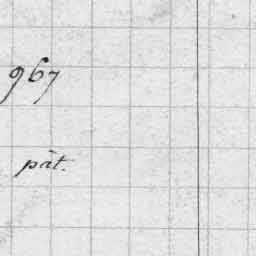 967
pât.